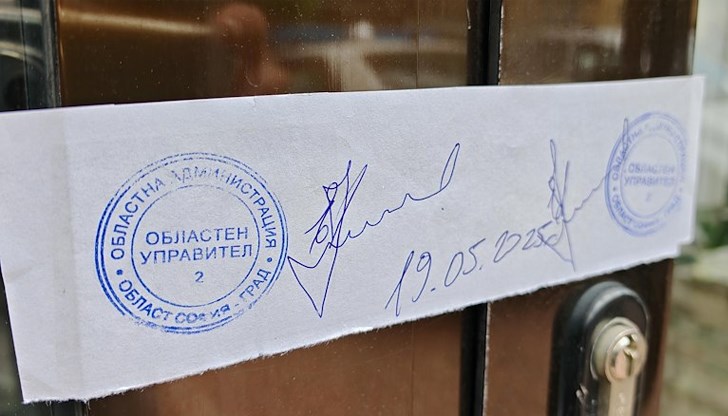 ОБЛАСТНА АДМИНИСТРАЦИЯ
ОБЛАСТЕН
УПРАВИТЕЛ
2
ОБЛАСТ СОФИЯ - ГРАД
19.05.2025
ОБЛАСТЕН
УПРАВИТЕЛ
2